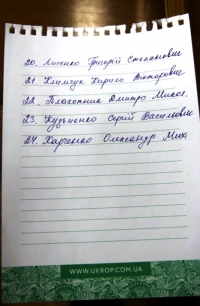 20. Лисенко Григорій Степанович
21. Климчук Кирило Вікторович
22. Плахотник Дмитро Микол.
23. Кузьменко Сергій Васильович
24. Харченко Олександр Мих.
WWW.UKROP.COM.UA